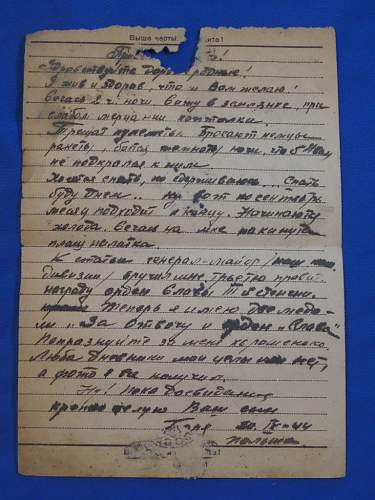 Выше черты
Здравствуйте дорогие родные!
Я жив и здоров, что и Вам желаю!
Сейчас 2 ч. ночи, сижу в землянке, при
слабом мерцании коптилки.
Трещат пулеметы. Бросают немцы
ракеты, боятся темноты ночи, чтоб Иван
не подкрался к ним.
Хочется спать, но сдерживаюсь. Спать
буду днем.. Ну вот и сентябрь
месяц подходит к концу. Начинаются
холода. Сейчас на мне накинута
плащ палатка.
К стати генерал-майор /наш
дивизии/ вручил мне третью правит.
награду орден Славы III й степени.
Теперь я имею две меда-
ли "За Отвагу" и орден "Слава"
Попразднуйте за меня хорошенько.
Люба Дневники мои целы или нет,
а фото я не получил.
Ну! Пока Досвидания
крепко целую Ваш сын
30. IX-44
Польша.